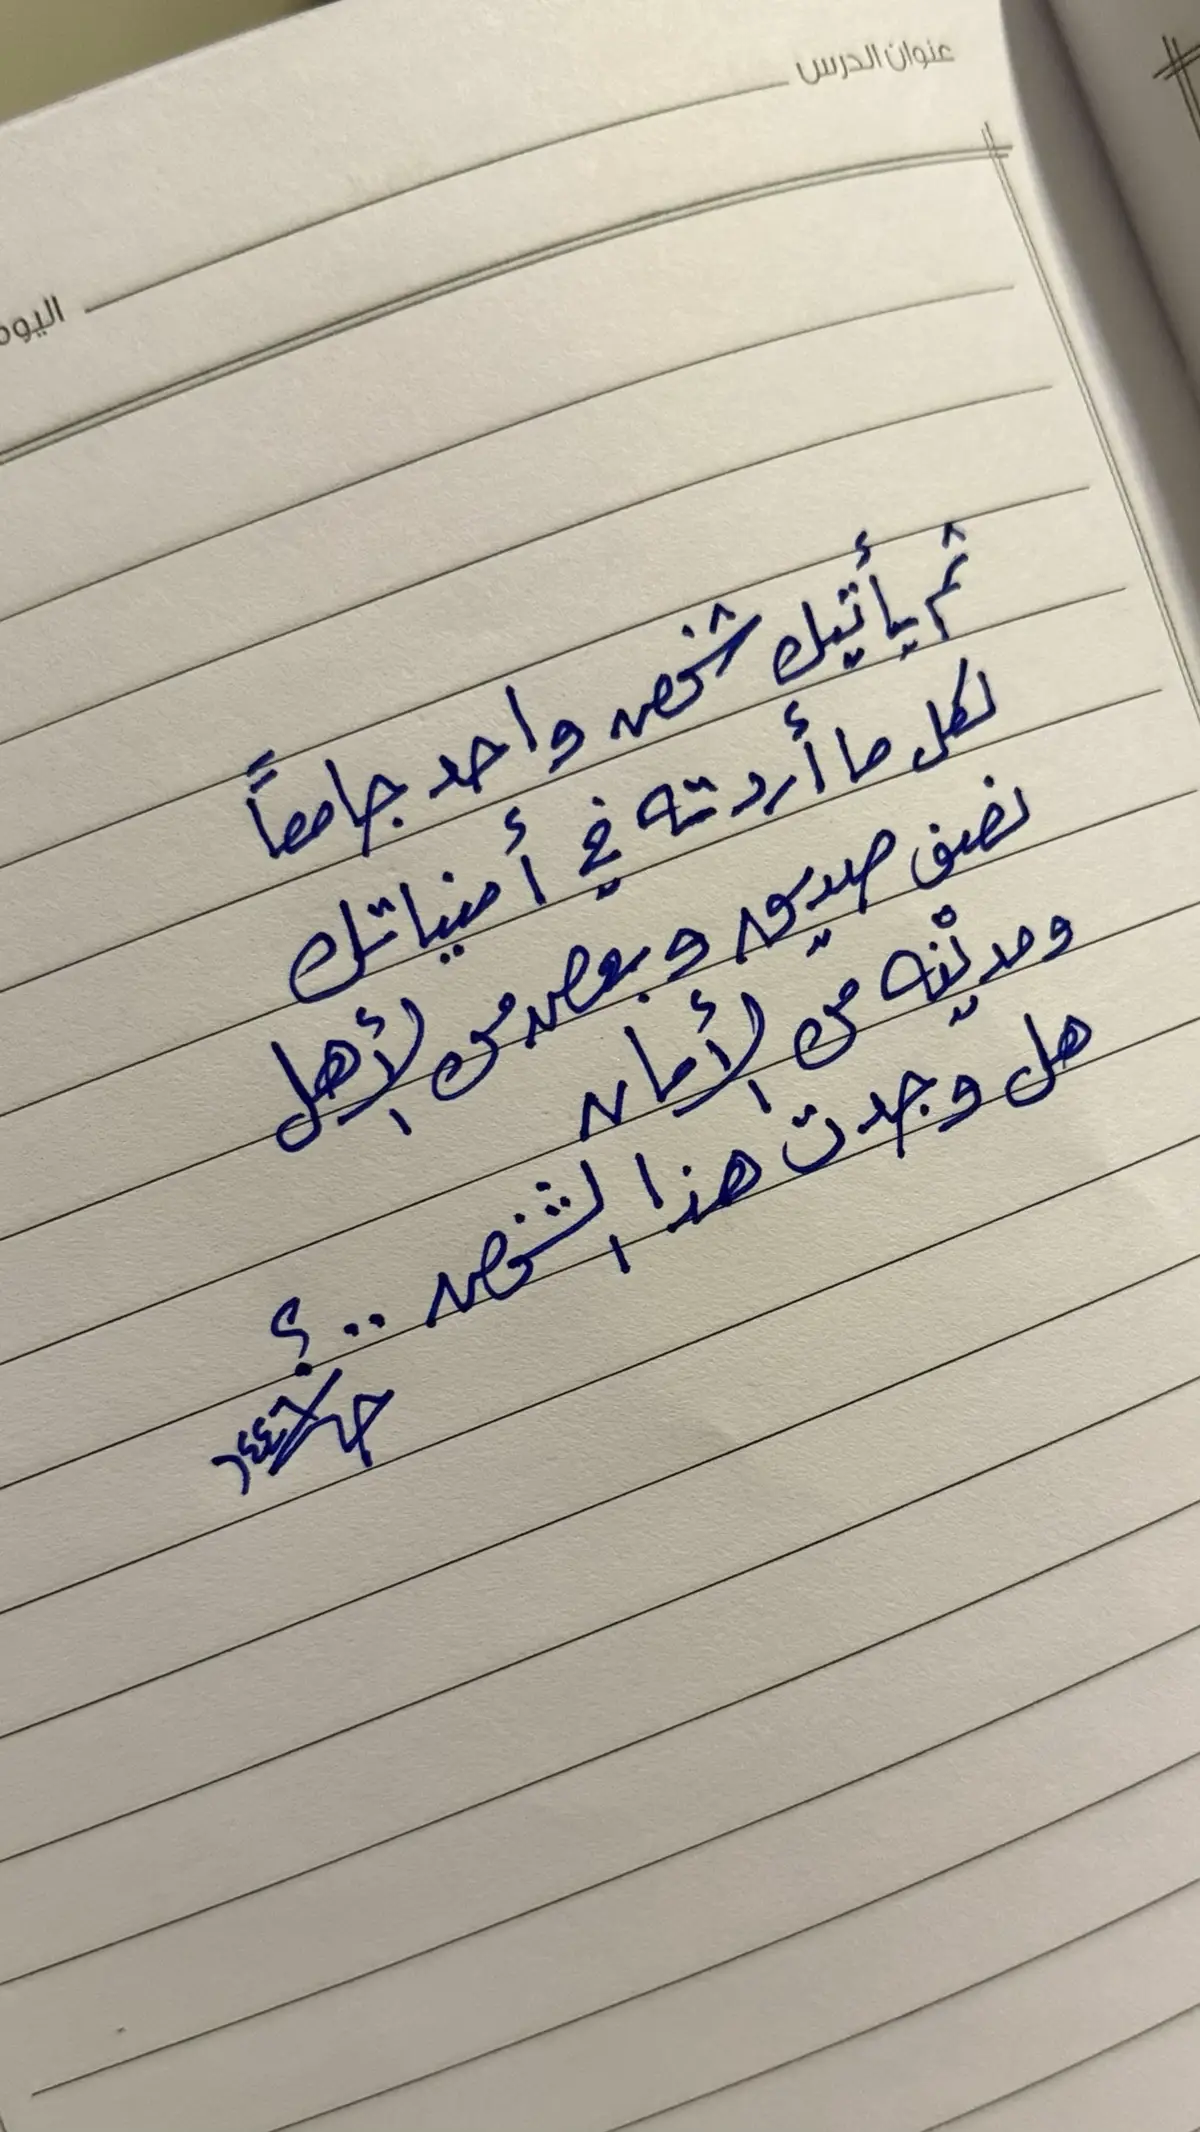 عنوان الدرس
اليوم
ثم يأتيك شخص واحد جامعاً
لكل ما أردته في أمنياتك
نصف صديق وبعض من الأهل
ومدينه من الأمان
هل وجدت هذا الشخص ..؟